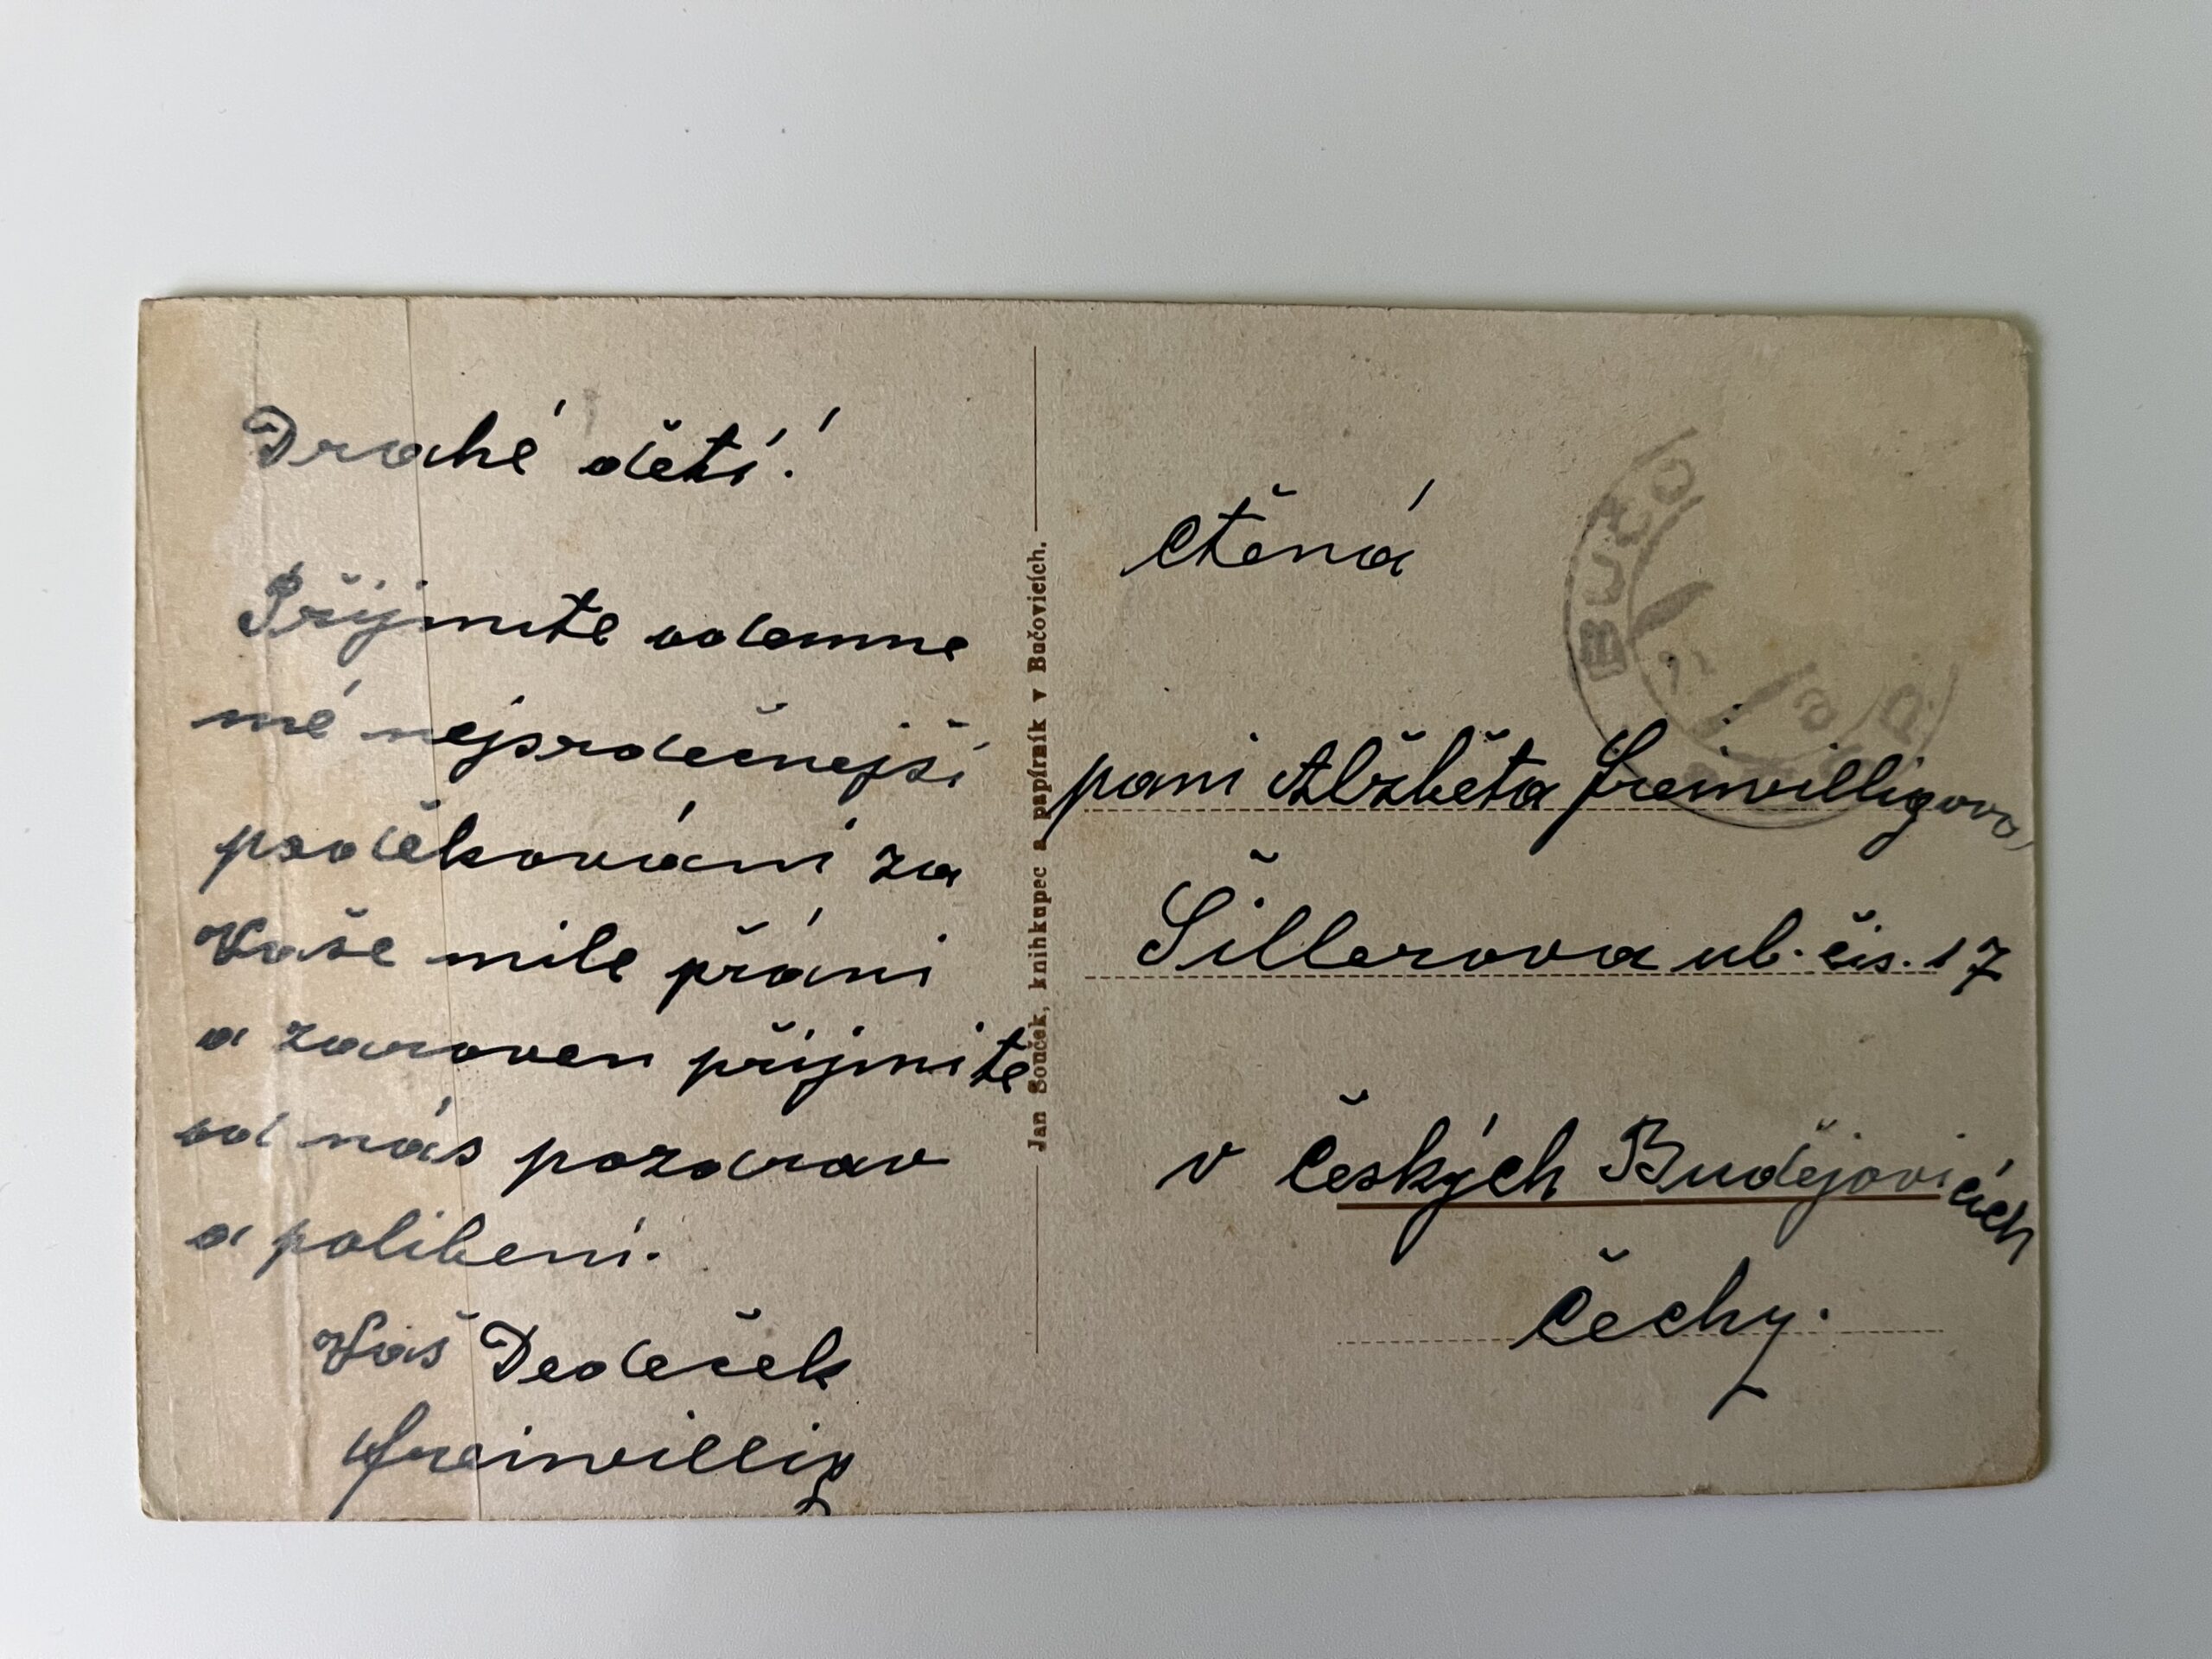 Drahé děti!
Přijmite odemne
mé nejsrdečnejší
poděkováni za
Vaše mile přáni
a zaroven přijmite
od nás pozdrav
a polibeni.
Váš Dedeček
Freiwillig
Jan Souček, knihkupec a papírník v Bučovicích.
Ctěná
pani Alžběta Freiwilligova
Šillerova ul. čis. 17
v Českých Budějovicich
Čechy.
BUČO